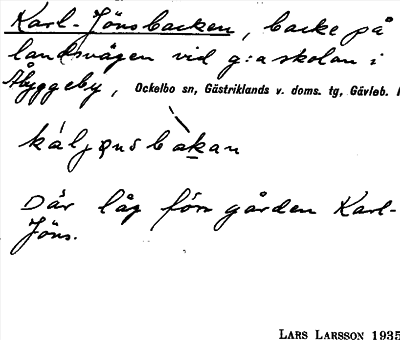 Karl-Jönsbacken, backe på
landsvägen vid g:a skolan i
Åbyggeby, Ockelbo sn, Gästriklands v. doms. tg, Gävleb. l
káljɷns bakan
Där låg förr gården Karl-
Jöns.
LARS LARSSON 1935